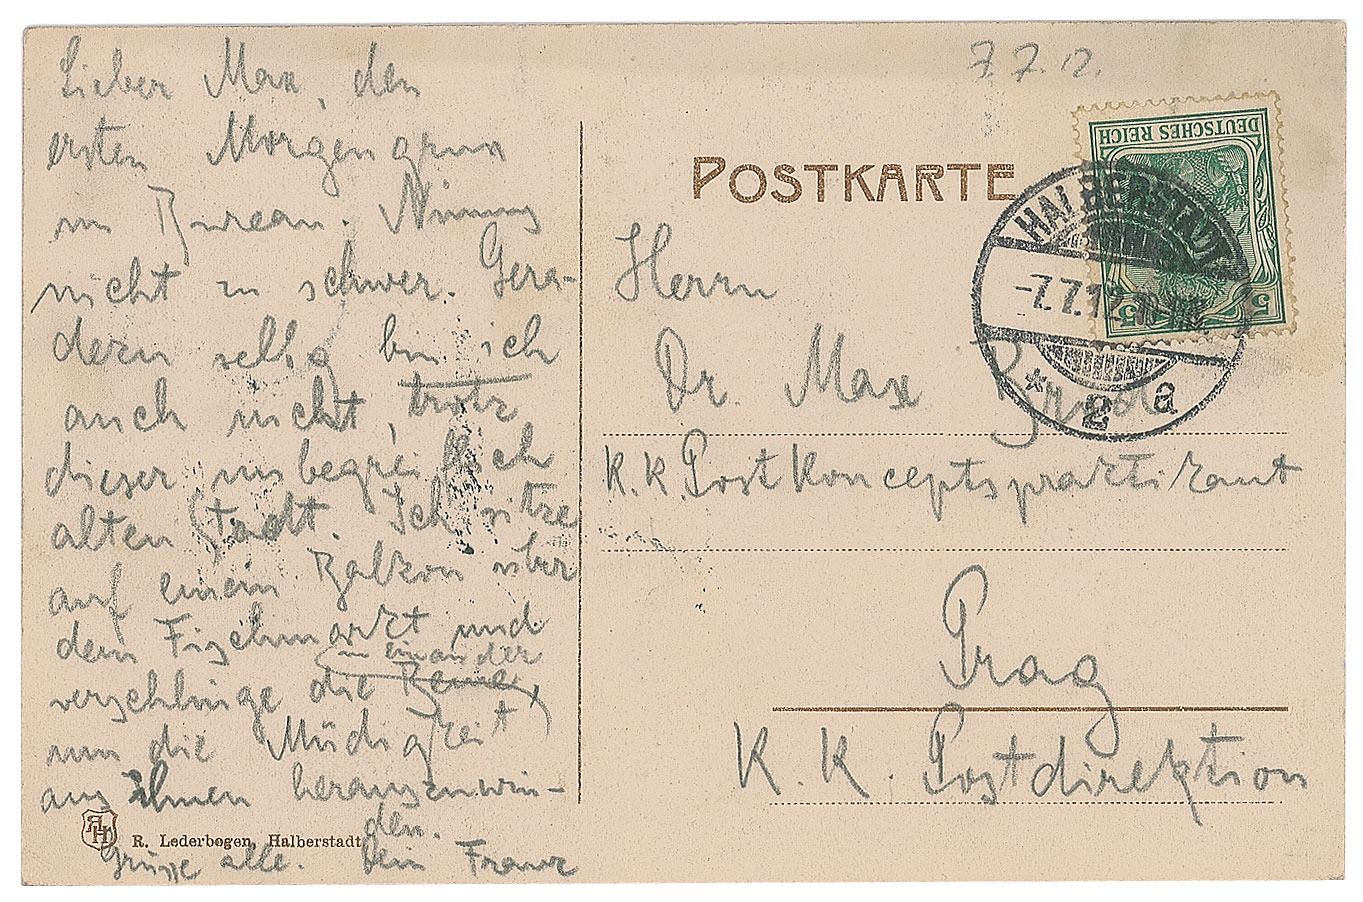 Lieber Max, den
ersten Morgengruss
im Bureau. Nimms
nicht zu schwer. Gera-
dezu selig bin ich
auch nicht, trotz
dieser unbegreiflich
alten Stadt. Ich sitze
auf einem Balkon über
dem Fischmarkt und
in einander
verschlinge die Beine,
um die Müdigkeit
aus ihnen herauszuwin-
den.
Grüsse alle. Dein Franz
R. Lederbogen, Halberstadt
7.7.12.
POSTKARTE
DEUTSCHES REICH
5 5
HALBERSTADT
-7.7.12
* 2 a
Herrn
Dr. Max Brod
K. K. Postkonceptspraktikant
Prag
K. K. Postdirektion